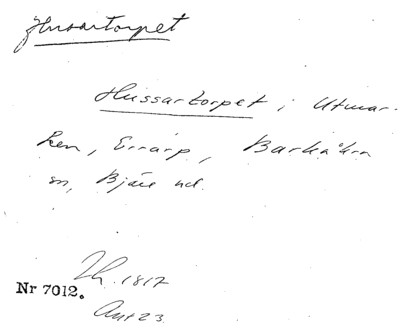 Hussartorpet
Hussartorpet i Utmar-
ken, Errarp, Barkåkra
sn, Bjäre hd.
Th. 1817
Nr 7012.
Ant 23